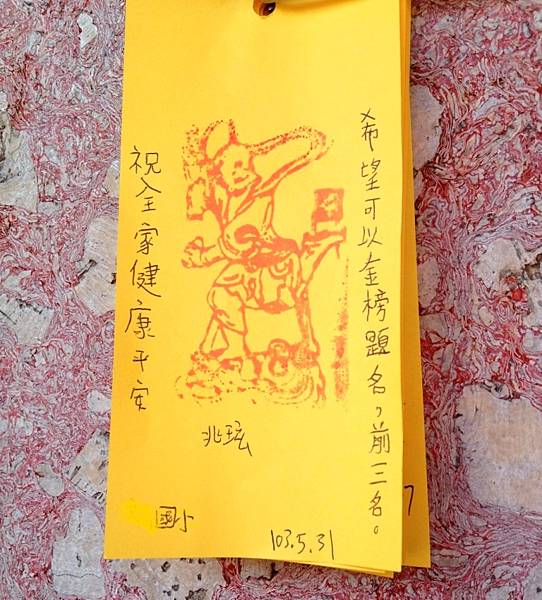 希望可以金榜題名，前三名。
祝全家健康平安
兆玹
國小
103.5.31
7